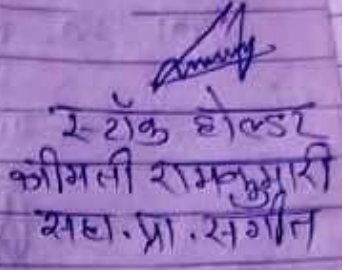 स्टॉक होल्डर
श्रीमती रामकुमारी
सहा. प्रा. संगीत